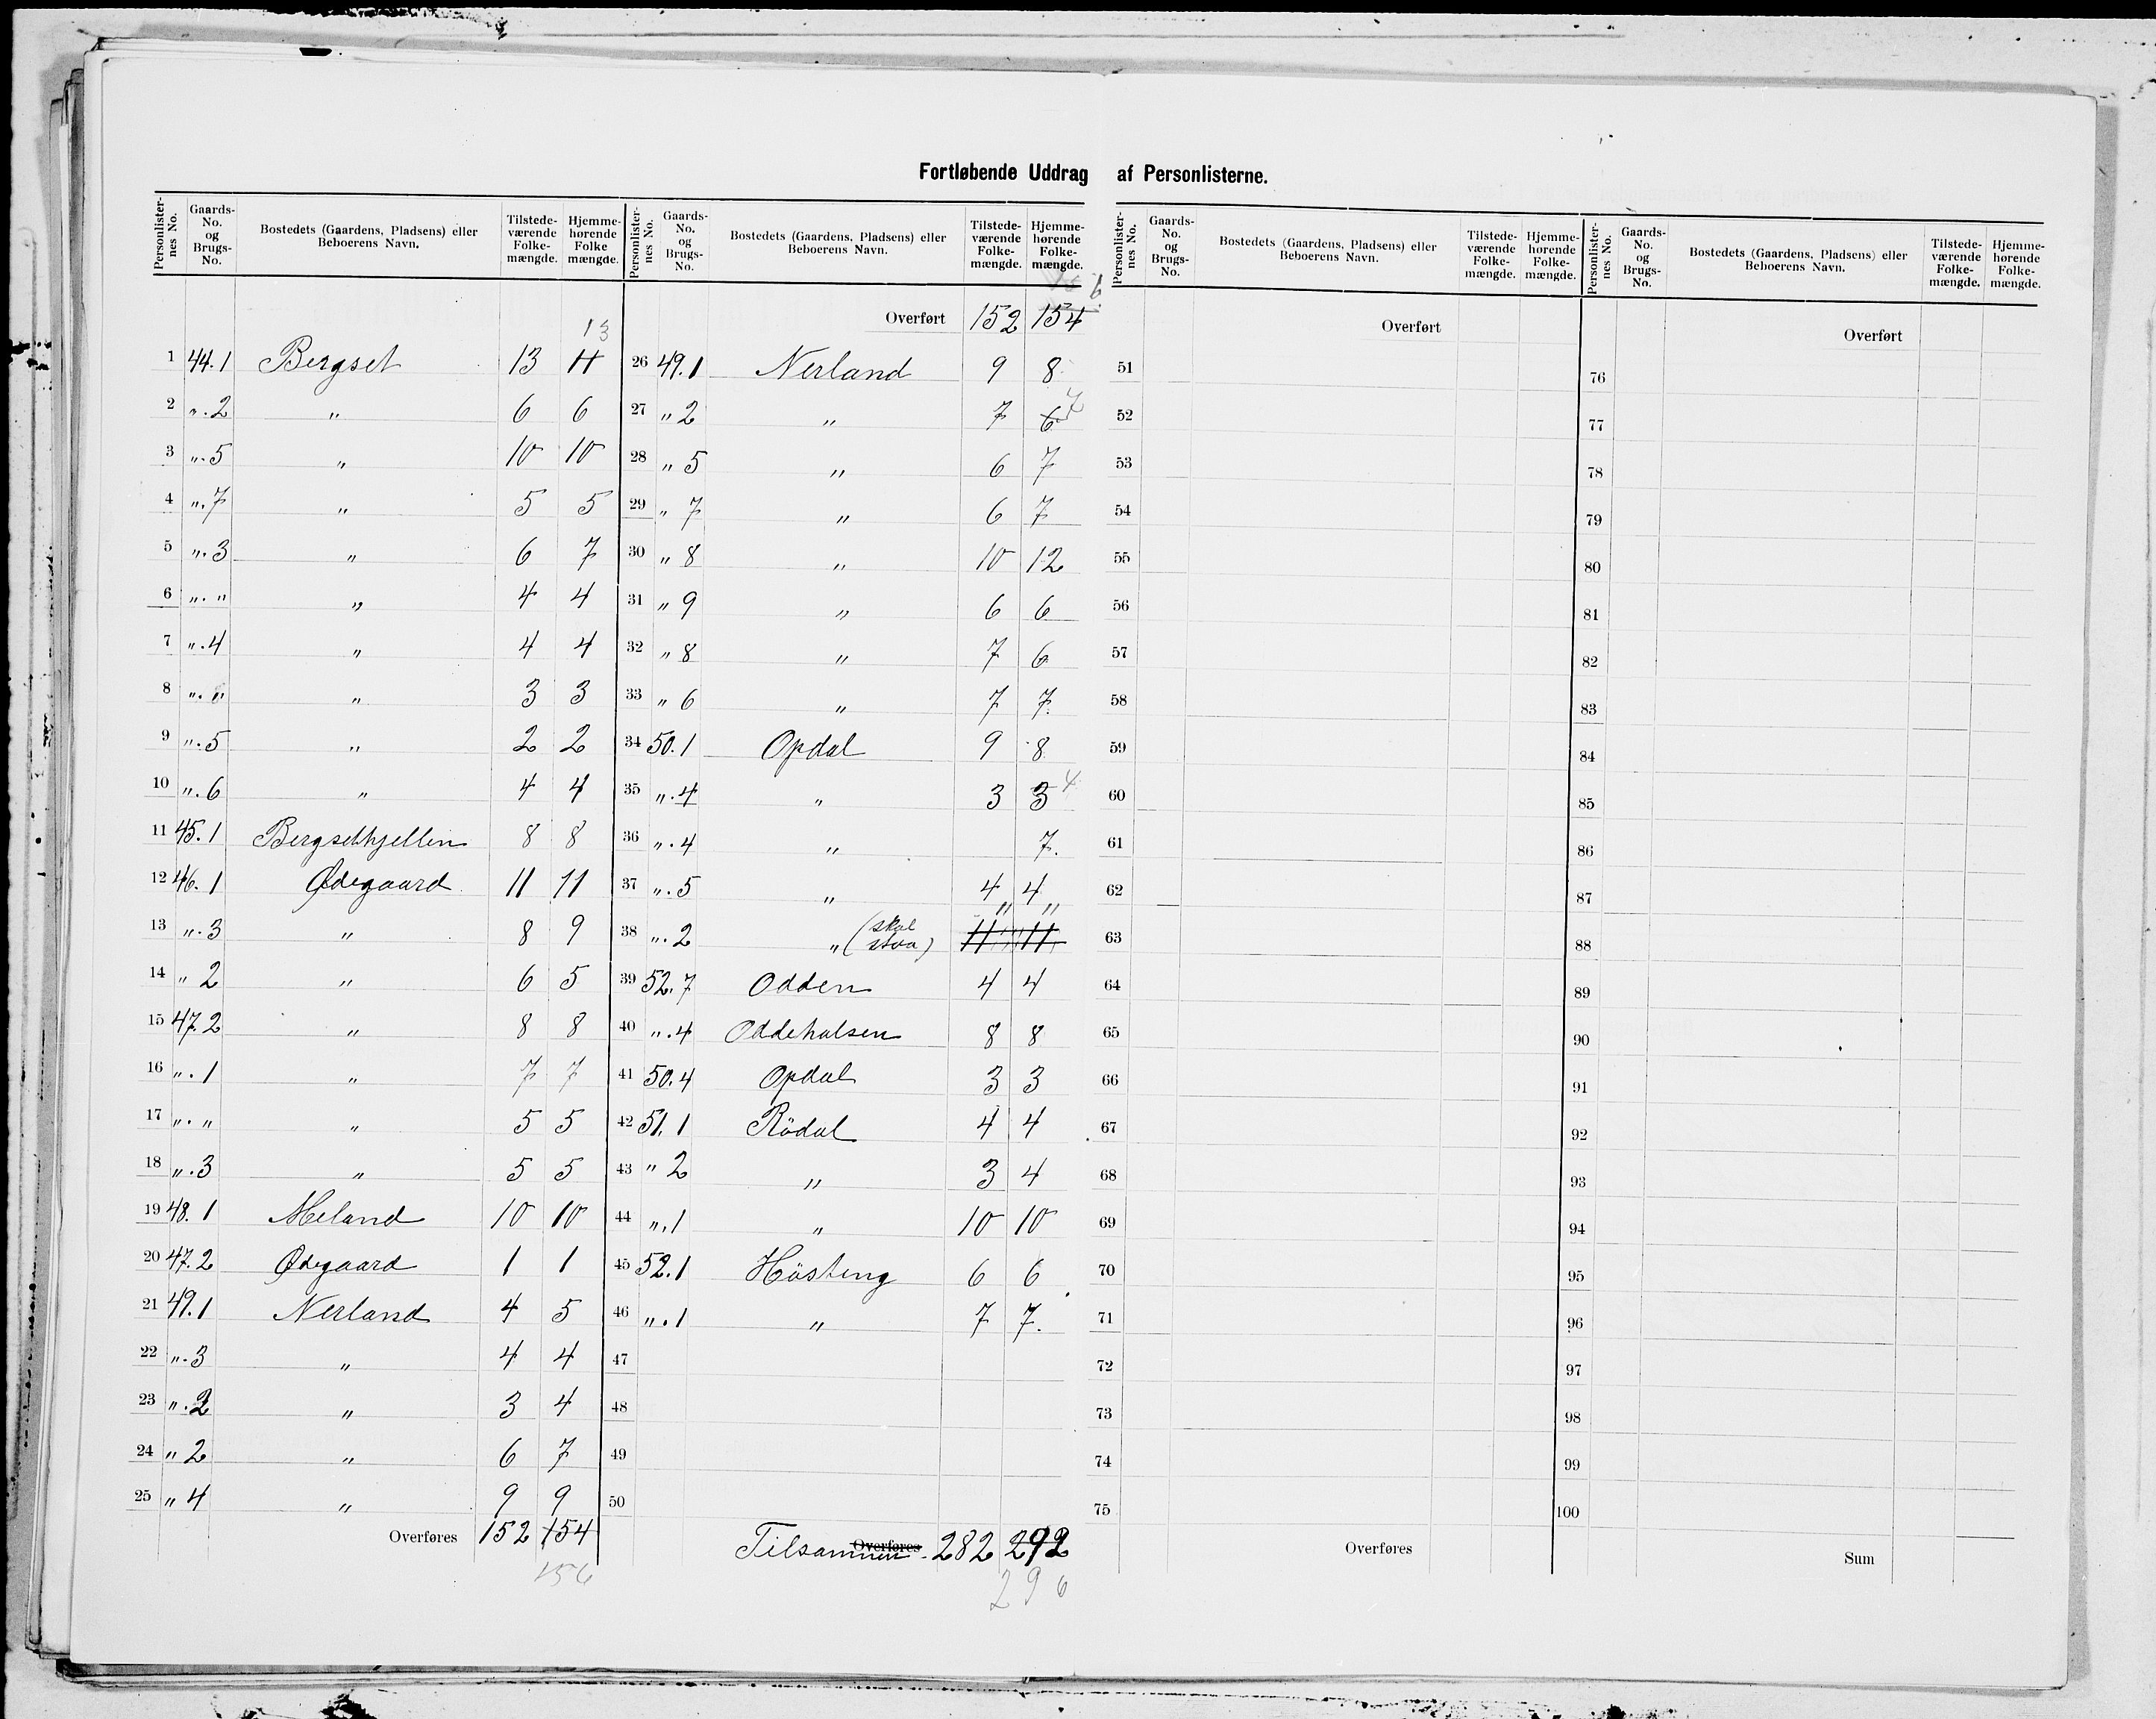 Fortløbende Uddrag af Personlisterne.
Personlisternes No. Gaards-No. og Brugs-No. Bostedets (Gaardens, Pladsens) eller Beboerens Navn. Tilstedeværende Folkemængde. Hjemmehørende Folkemængde.
Personlisternes No. Gaards-No. og Brugs-No. Bostedets (Gaardens, Pladsens) eller Beboerens Navn. Tilstedeværende Folkemængde. Hjemmehørende Folkemængde.
Personlisternes No. Gaards-No. og Brugs-No. Bostedets (Gaardens, Pladsens) eller Beboerens Navn. Tilstedeværende Folkemængde. Hjemmehørende Folkemængde.
Personlisternes No. Gaards-No. og Brugs-No. Bostedets (Gaardens, Pladsens) eller Beboerens Navn. Tilstedeværende Folkemængde. Hjemmehørende Folkemængde.
13
1 44.1 Bergset 13 11
2 ".2 " 6 6
3 ".5 " 10 10
4 ".7 " 5 5
5 ".3 " 6 7
6 "." " 4 4
7 ".4 " 4 4
8 "." " 3 3
9 ".5 " 2 2
10 ".6 " 4 4
11 45.1 Bergsethjellen 8 8
12 46.1 Ødegaard 11 11
13 ".3 " 8 9
14 " 2 " 6 5
15 47.2 " 8 8
16 ".1 " 7 7
17 "." " 5 5
18 ".3 " 5 5
19 48.1 Meland 10 10
20 47.2 Ødegaard 1 1
21 49.1 Nerland 4 5
22 ".3 " 4 4
23 ".2 " 3 4
24 " 2 " 6 7
25 " 4 " 9 9
Overføres 152 154
156
Overført 152 154
26 49.1 Nerland 9 8
27 " 2 " 7 6 7
28 " 5 " 6 7
29 " 7 " 6 7
30 " 8 " 10 12
31 " 9 " 6 6
32 " 8 " 7 6
33 " 6 " 7 7.
34 50.1 Opdal 9 8
35 ".4 " 3 3 4
36 ".4 " 7.
37 ".5 " 4 4
38 ".2 " (skol stova) " " 11 11
39 52.7 Odden 4 4
40 ".4 Oddehalsen 8 8
41 50.4 Opdal 3 3
42 51.1 Rödal 4 4
43 " 2 " 3 4
44 ".1 " 10 10
45 52.1 Hästeng 6 6
46 ".1 " 7 7.
47
48
49
50
Overføres Tilsammen 282 292
296
Overført
51
52
53
54
55
56
57
58
59
60
61
62
63
64
65
66
67
68
69
70
71
72
73
74
75
Overføres
Overført
76
77
78
79
80
81
82
83
84
85
86
87
88
89
90
91
92
93
94
95
96
97
98
99
100
Sum